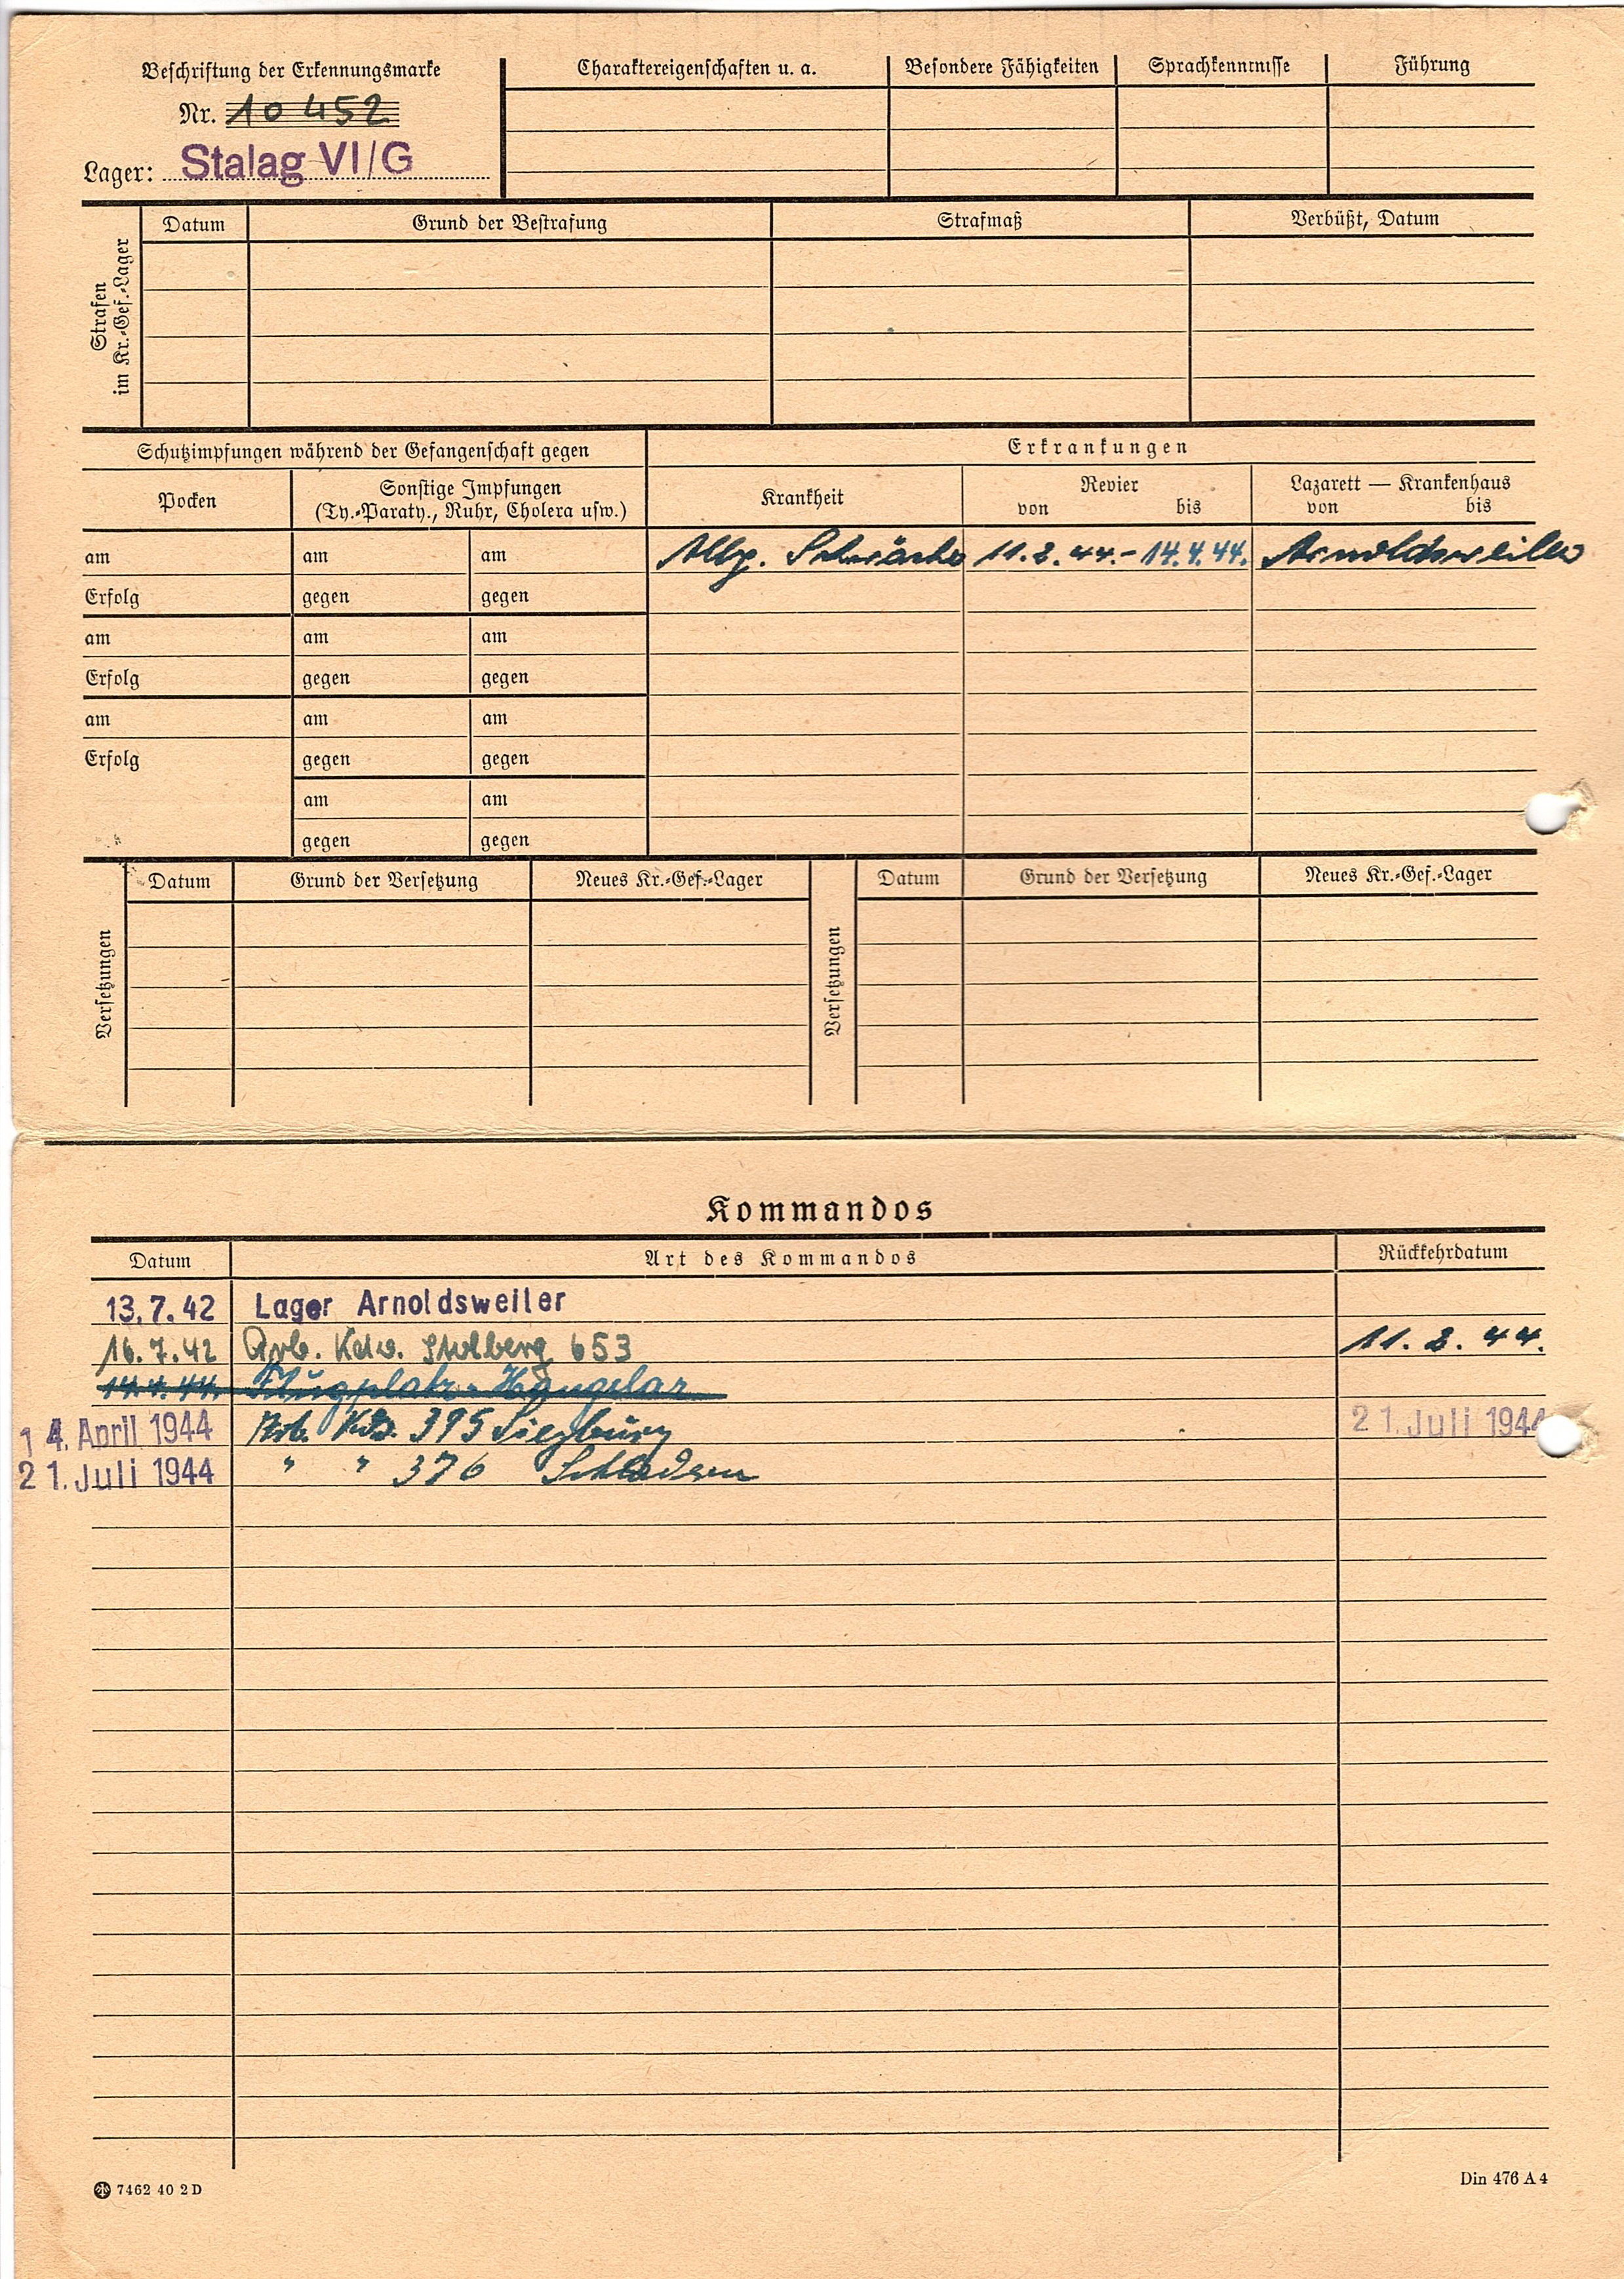 Beschriftung der Erkennungsmarke
Nr. 10 452
Lager: Stalag VI/G
Charaktereigenschaften u. a. Besondere Fähigkeiten Sprachkenntnisse Führung
Strafen
im Kr.-Gef.-Lager
Datum Grund der Bestrafung Strafmaß Verbüßt, Datum
Schutzimpfungen während der Gefangenschaft gegen
Pocken
Sonstige Impfungen
(Ty.-Paraty., Ruhr, Cholera usw.)
am am am
Erfolg gegen gegen
am am am
Erfolg gegen gegen
am am am
Erfolg gegen gegen
am am
gegen gegen
Erkrankungen
Krankheit
Revier
von bis
Lazarett — Krankenhaus
von bis
Allg. Schwäche 11.2.44.- 14.4.44. Arnoldsweiler
Versetzungen
Datum Grund der Versetzung Neues Kr.-Gef.-Lager
Versetzungen
Datum Grund der Versetzung Neues Kr.-Gef.-Lager
Kommandos
Datum Art des Kommandos Rückkehrdatum
13.7.42 Lager Arnoldsweiler
16.7.42 Arb. Kdo. Stolberg 653 11.2.44.
14.4.44. Flugplatz-Hangelar
14. April 1944 Arb. Kdo. 395 Siegburg 21. Juli 1944
21. Juli 1944 " " 376 Schladern
7462 40 2 D
Din 476 A 4